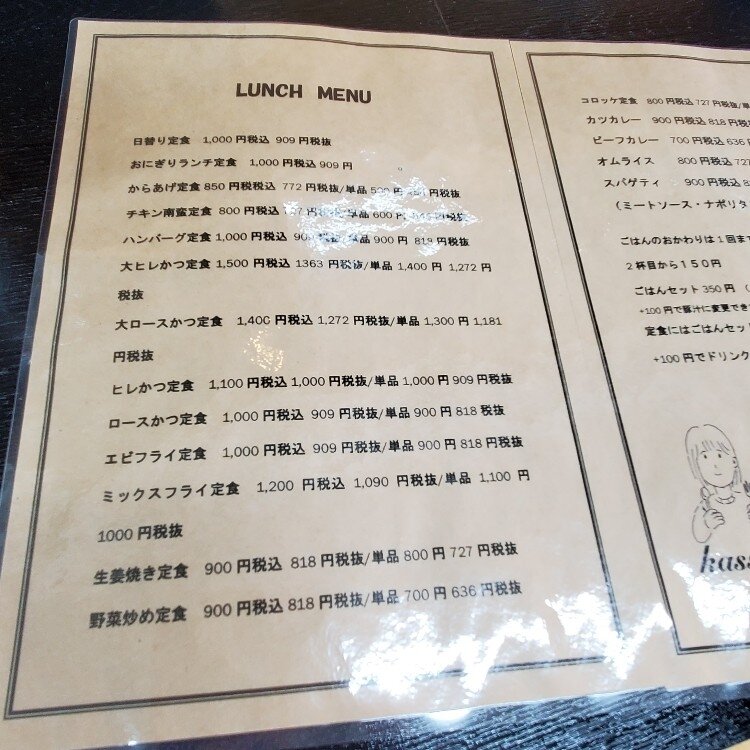 LUNCH MENU
日替り定食 1,000円税込 909円税抜
おにぎりランチ定食 1,000円税込909円
からあげ定食850円税税込 772円税抜/単品 円税抜
チキン南蛮定食 800円税込 円税抜/単品600円 円税抜
ハンバーグ定食1,000円税込 円税抜/単品900円 819円税抜
大ヒレかつ定食1,500円税込 1363円税抜/単品1,400円1,272円
税抜
大ロースかつ定食 1,400円税込1,272円税抜/単品1,300円1,181
円税抜
ヒレかつ定食 1,100円税込1,000円税抜/単品1,000円909円税抜
ロースかつ定食 1,000円税込 909円税抜/単品900円818税抜
エビフライ定食 1,000円税込 909円税抜/単品900円818円税抜
ミックスフライ定食 1,200円税込 1,090円税抜/単品 1,100円
1000円税抜
生姜焼き定食 900円税込 818円税抜/単品800円727円税抜
野菜炒め定食 900円税込818円税抜/単品700円636円税抜
コロッケ定食 800円税込727円税抜/単
カツカレー 900円税込818円税
ビーフカレー 700円税込636
オムライス 800円税込727
スパゲティ 900円税込
(ミートソース・ナポリタ
ごはんのおかわりは1回ま
2杯目から150円
ごはんセット350円(
+100円で豚汁に変更でき
定食にはごはんセッ
+100円でドリンク
kass